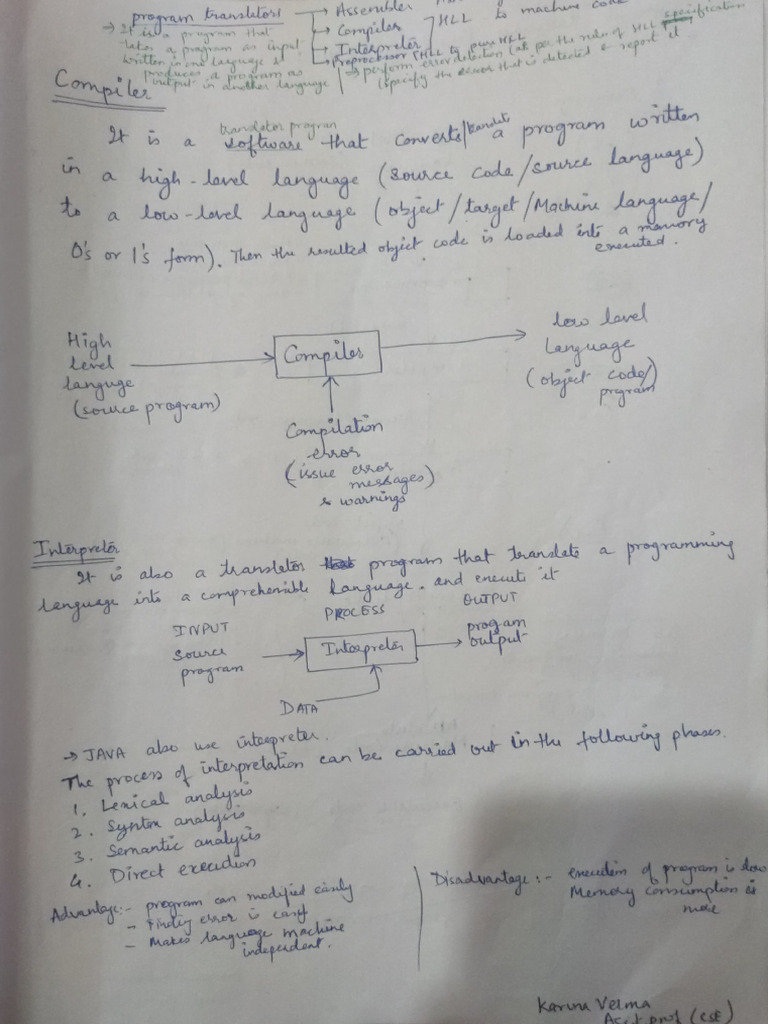 program translators → Assembler
→ Compiler
→ Interpreter
Preprocessor
HLL to machine code
HLL to pure HLL
→ It is a program that
takes a program as input
written in one language &
produces a program as
output in another language
→ perform error detection (as per the rules of HLL specification
(specify the error that is detected & report it
Compiler
translator program
It is a software that converts/translate a program written
in a high-level language (source code/source language)
to a low-level language (object/target/Machine language/
0's or 1's form). Then the resulted object code is loaded into a memory
executed.
High
level
languge
(source program)
Compiler
low level
language
(object code/
program)
Compilation
error
(issue error
messages)
& warnings
Interpreter
It is also a translator program that translate a programming
language into a comprehensible language. and execute it
INPUT
PROCESS
OUTPUT
Source
program
Interpreter
program
output
DATA
→ JAVA also use interpreter.
The process of interpretation can be carried out in the following phases.
1. Lexical analysis
2. Syntax analysis
3. Semantic analysis
4. Direct execution
Advantage:- program can modified easily
- Finding error is easy
- Makes language machine
independent.
Disadvantage:- execution of program is slow
Memory consumption is
more
Karuna Velma
Asst prof (CSE)